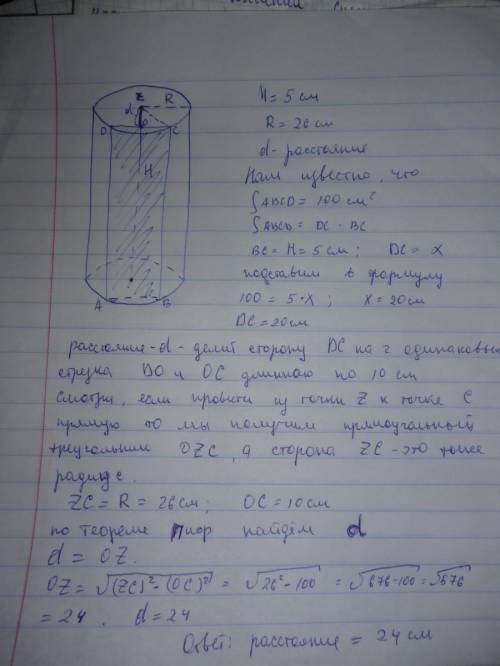 Z
R
d
D
O
C
H
A
B
H = 5 см
R = 26 см
d - расстояние
Нам известно, что
SABCD = 100 см²
SABCD = DC · BC
BC = H = 5 см ; DC = X
подставим в формулу
100 = 5·X ; X = 20см
DC = 20см
расстояние - d - делит сторону DC на 2 одинаковых
отрезка DO и OC длиною по 10 см
Смотри, если провести из точки Z к точке C
прямую то мы получим прямоугольный
треугольник OZC, а сторона ZC - это тоже
радиус.
ZC = R = 26см ; OC = 10см
по теореме Пифр найдём d
d = OZ.
OZ = √(ZC)² - (OC)² = √26² - 100 = √676 - 100 = √576
= 24 . d = 24
Ответ: расстояние = 24 см